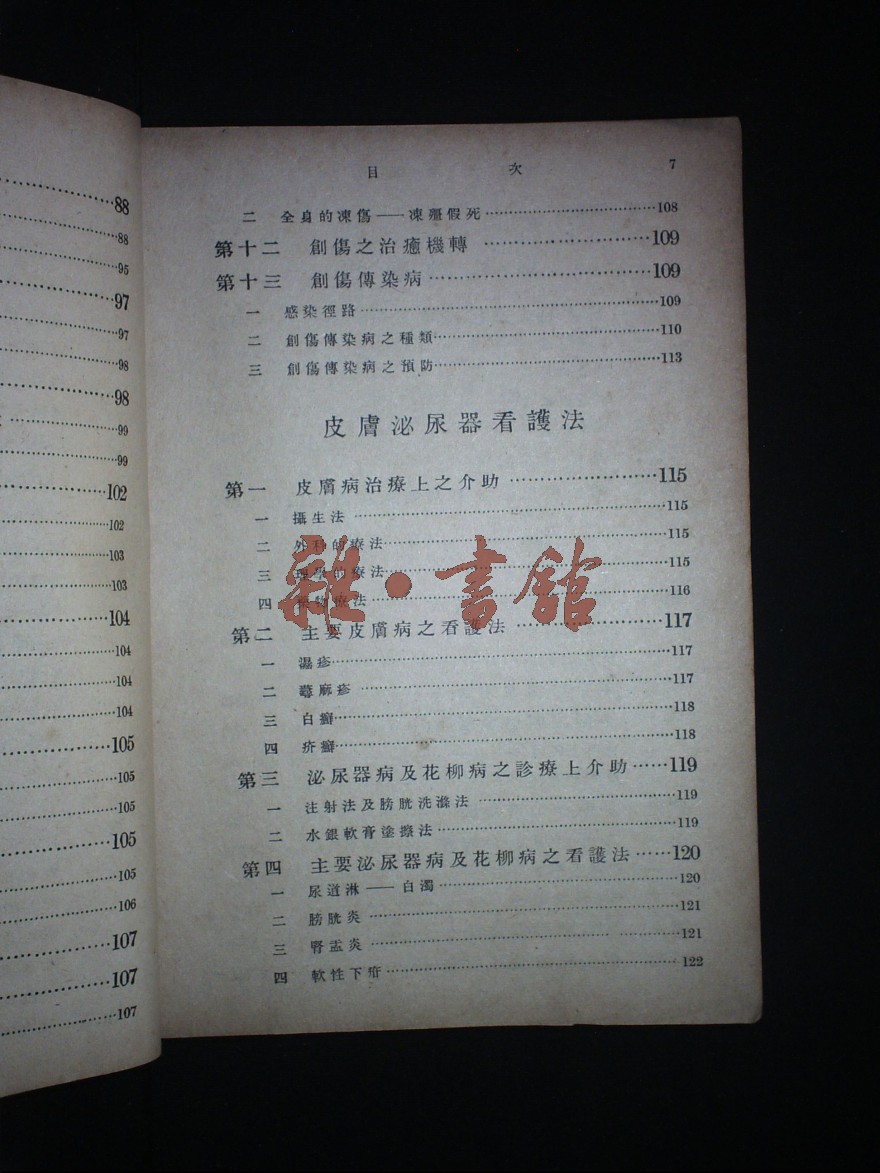 88
88
95
97
97
98
98
99
99
102
102
103
103
104
104
104
104
105
105
105
105
105
106
107
107
107
目 次 7
二 全身的凍傷——凍殭假死 108
第十二 創傷之治癒機轉 109
第十三 創傷傳染病 109
一 感染徑路 109
二 創傷傳染病之種類 110
三 創傷傳染病之預防 113
皮膚泌尿器看護法
第一 皮膚病治療上之介助 115
一 攝生法 115
二 外科的療法 115
三 理學的療法 115
四 藥物療法 116
第二 主要皮膚病之看護法 117
一 濕疹 117
二 蕁麻疹 117
三 白癬 118
四 疥癬 118
第三 泌尿器病及花柳病之診療上介助 119
一 注射法及膀胱洗滌法 119
二 水銀軟膏塗擦法 119
第四 主要泌尿器病及花柳病之看護法 120
一 尿道淋——白濁 120
二 膀胱炎 121
三 腎盂炎 121
四 軟性下疳 122
雜·書館